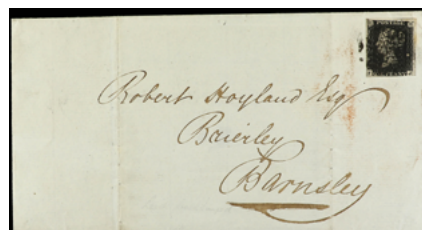 POSTAGE
Robert Hoyland Esq
Brierley
Barnsley